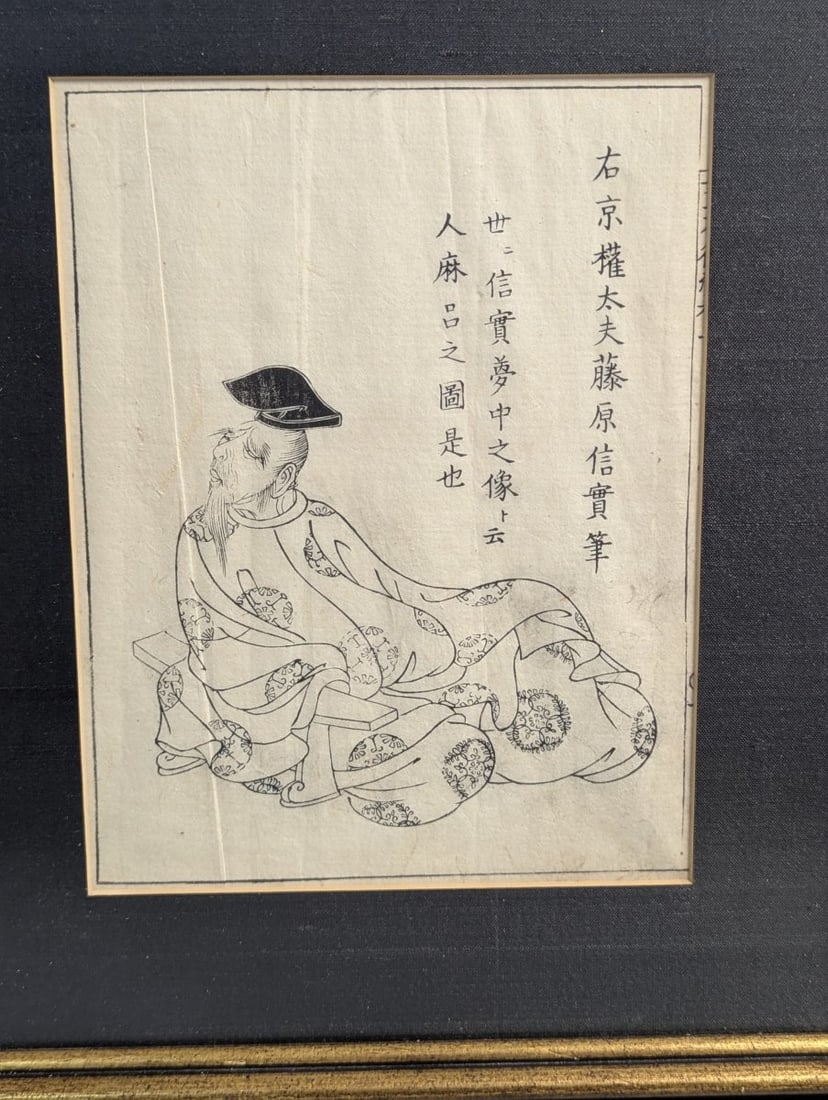 右京權太夫藤原信實筆
世ニ信實夢中之像ト云
人麻呂之圖是也